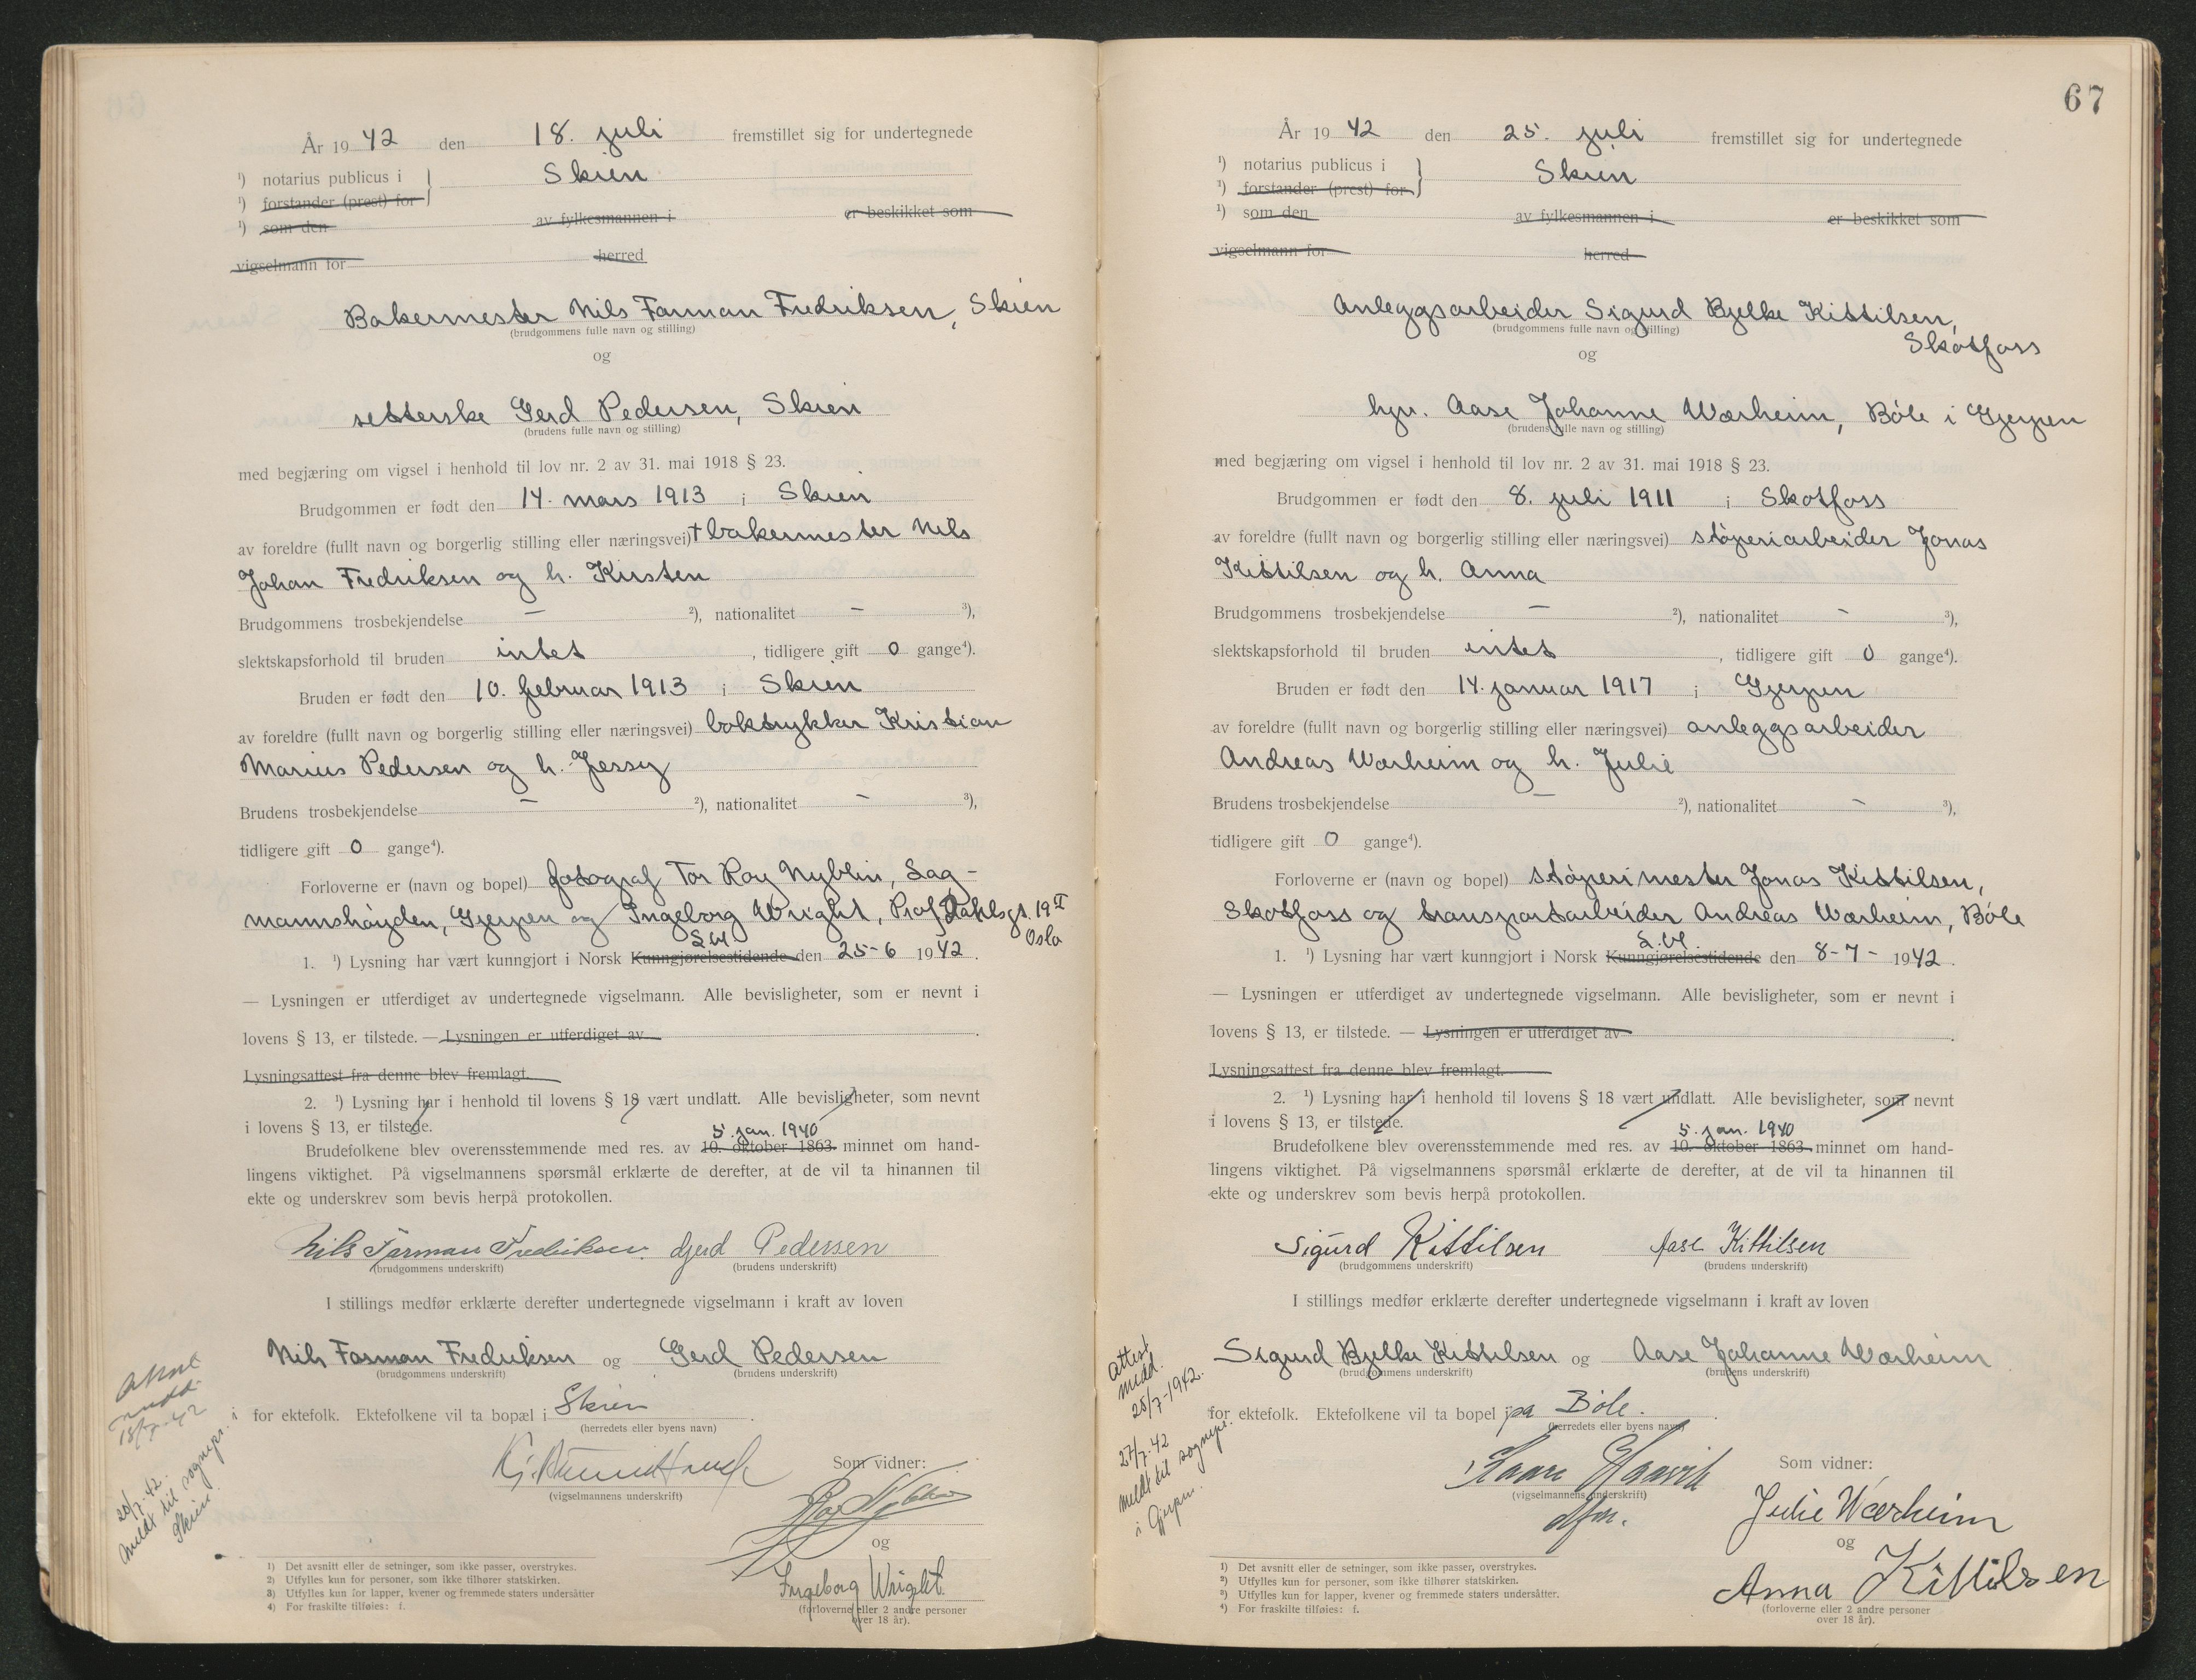 År 1942 den 18. juli fremstillet sig for undertegnede
¹) notarius publicus i } Skien
¹) forstander (prest) for
¹) som den av fylkesmannen i er beskikket som
vigselmann for herred
Bakermester Nils Farman Fredriksen, Skien
(brudgommens fulle navn og stilling)
og
setterske Gerd Pedersen, Skien
(brudens fulle navn og stilling)
med begjæring om vigsel i henhold til lov nr. 2 av 31. mai 1918 § 23.
Brudgommen er født den 14. mars 1913 i Skien
av foreldre (fullt navn og borgerlig stilling eller næringsvei) † bakermester Nils
Johan Fredriksen og h. Kirsten
Brudgommens trosbekjendelse — ²), nationalitet — ³),
slektskapsforhold til bruden intet, tidligere gift 0 gange⁴).
Bruden er født den 10. februar 1913 i Skien
av foreldre (fullt navn og borgerlig stilling eller næringsvei) boktrykker Kristian
Marius Pedersen og h. Jessy
Brudens trosbekjendelse — ²), nationalitet — ³),
tidligere gift 0 gange⁴).
Forloverne er (navn og bopel) fotograf Tor Roy Nyblin, Sag-
mannshøyden, Gjerpen og Ingeborg Wright, Prof Dahlsgt. 19 II
Oslo
S.W.
1. ¹) Lysning har vært kunngjort i Norsk Kunngjørelsestidende den 25-6 1942.
— Lysningen er utferdiget av undertegnede vigselmann. Alle bevisligheter, som er nevnt i
lovens § 13, er tilstede. — Lysningen er utferdiget av
Lysningsattest fra denne blev fremlagt.
2. ¹) Lysning har i henhold til lovens § 18 vært undlatt. Alle bevisligheter, som nevnt
i lovens § 13, er tilstede.
5. jan. 1940
Brudefolkene blev overensstemmende med res. av 10. oktober 1863 minnet om hand-
lingens viktighet. På vigselmannens spørsmål erklærte de derefter, at de vil ta hinannen til
ekte og underskrev som bevis herpå protokollen.
Nils Farman Fredriksen. Gerd Pedersen
(brudgommens underskrift) (brudens underskrift)
I stillings medfør erklærte derefter undertegnede vigselmann i kraft av loven
Nils Farman Fredriksen og Gerd Pedersen
(brudgommens underskrift) (brudens underskrift)
for ektefolk. Ektefolkene vil ta bopæl i Skien.
(herredets eller byens navn)
Som vidner:
(vigselmannens underskrift)
og
Ingeborg Wright.
(forloverne eller 2 andre personer
over 18 år).
Attest
medd.
18/7-42
20/7-42.
meldt til sognepr. i
Skien.
1) Det avsnitt eller de setninger, som ikke passer, overstrykes.
2) Utfylles kun for personer, som ikke tilhører statskirken.
3) Utfylles kun for lapper, kvener og fremmede staters undersåtter
4) For fraskilte tilføies: f.
67
År 1942 den 25. juli fremstillet sig for undertegnede
¹) notarius publicus i } Skien
¹) forstander (prest) for
¹) som den av fylkesmannen i er beskikket som
vigselmann for herred
Anleggsarbeider Sigurd Bjelke Kittilsen,
Skotfoss
(brudgommens fulle navn og stilling)
og
hgv. Aase Johanne Wærheim, Bøle i Gjerpen
(brudens fulle navn og stilling)
med begjæring om vigsel i henhold til lov nr. 2 av 31. mai 1918 § 23.
Brudgommen er født den 8. juli 1911 i Skotfoss
av foreldre (fullt navn og borgerlig stilling eller næringsvei) støperiarbeider Jonas
Kittilsen og h. Anna
Brudgommens trosbekjendelse — ²), nationalitet — ³),
slektskapsforhold til bruden intet, tidligere gift 0 gange⁴).
Bruden er født den 14. januar 1917 i Gjerpen
av foreldre (fullt navn og borgerlig stilling eller næringsvei) anleggsarbeider
Andreas Wærheim og h. Julie
Brudens trosbekjendelse — ²), nationalitet — ³),
tidligere gift 0 gange⁴).
Forloverne er (navn og bopel) støperimester Jonas Kittilsen,
Skotfoss og transportarbeider Andreas Wærheim, Bøle
S.W.
1. ¹) Lysning har vært kunngjort i Norsk Kunngjørelsestidende den 8-7- 1942.
— Lysningen er utferdiget av undertegnede vigselmann. Alle bevisligheter, som er nevnt i
lovens § 13, er tilstede. — Lysningen er utferdiget av
Lysningsattest fra denne blev fremlagt.
2. ¹) Lysning har i henhold til lovens § 18 vært undlatt. Alle bevisligheter, som nevnt
i lovens § 13, er tilstede.
5. jan. 1940
Brudefolkene blev overensstemmende med res. av 10. oktober 1863 minnet om hand-
lingens viktighet. På vigselmannens spørsmål erklærte de derefter, at de vil ta hinannen til
ekte og underskrev som bevis herpå protokollen.
Sigurd Kittilsen Aase Kittilsen
(brudgommens underskrift) (brudens underskrift)
I stillings medfør erklærte derefter undertegnede vigselmann i kraft av loven
Sigurd Bjelke Kittilsen og Aase Johanne Wærheim
(brudgommens underskrift) (brudens underskrift)
for ektefolk. Ektefolkene vil ta bopel i på Bøle.
(herredets eller byens navn)
Kaare Haavik
(vigselmannens underskrift)
dfm.
Som vidner:
Julie Wærheim
og
Anna Kittilsen
(forloverne eller 2 andre personer
over 18 år).
Attest
medd.
25/7-1942.
27/7-42
meldt til sognepr.
i Gjerpen.
¹) Det avsnitt eller de setninger, som ikke passer, overstrykes.
²) Utfylles kun for personer, som ikke tilhører statskirken.
³) Utfylles kun for lapper, kvener og fremmede staters undersåtter.
⁴) For fraskilte tilføies: f.